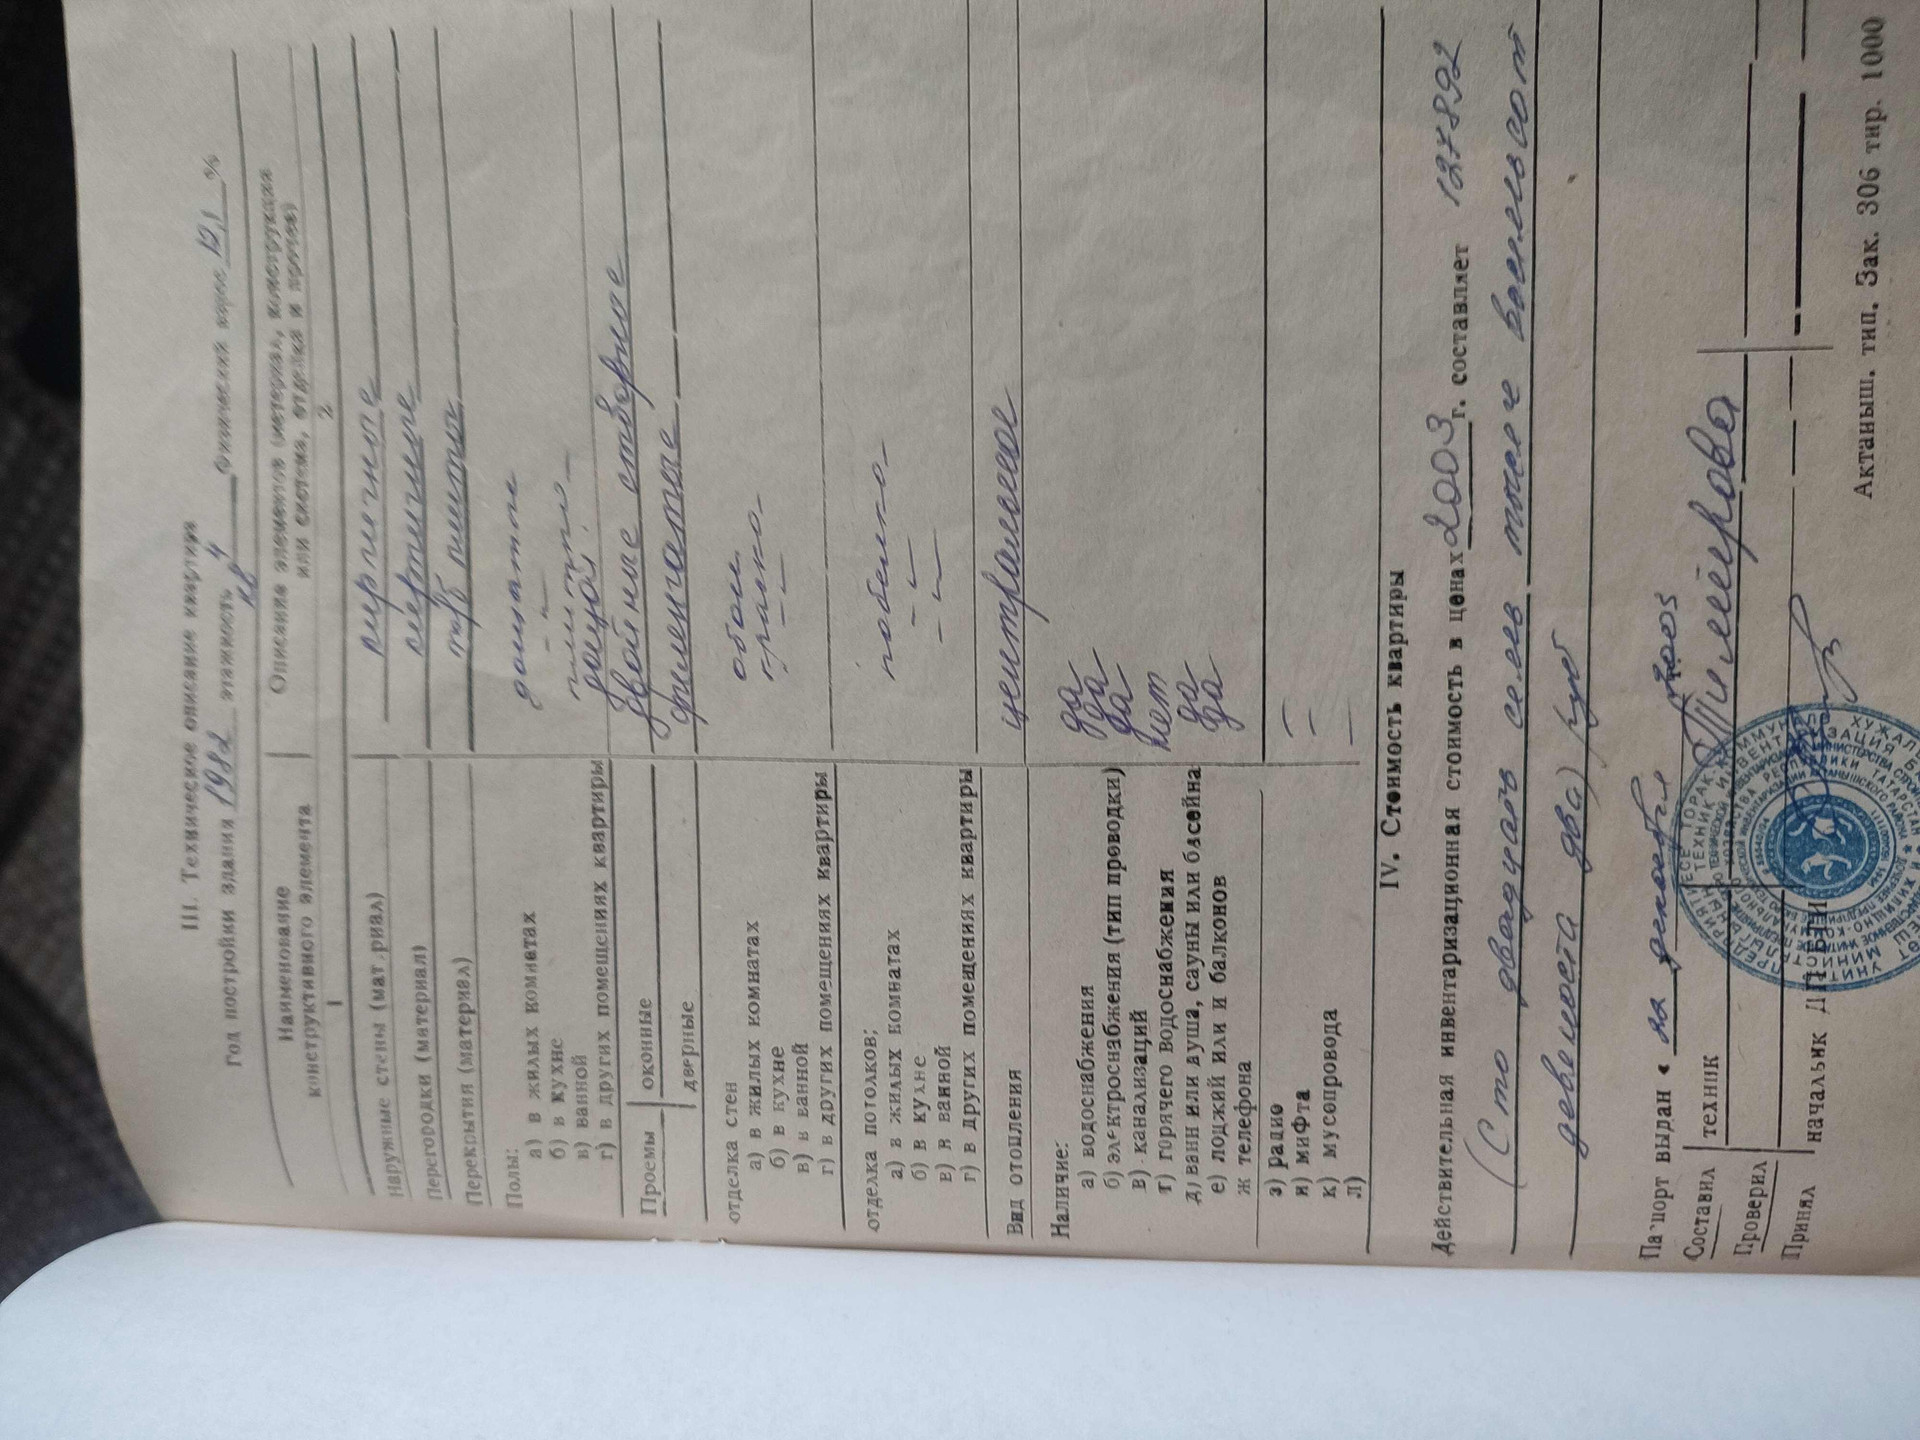 III. Техническое описание квартиры
Год постройки здания 1982 этажность 4 Физический износ 12,1 %
кв
Наименование конструктивного элемента
Описание элементов (материал, конструкция или система, отделка и прочее)
1 2
Наружные стены (мат.риал) кирпичные
Перегородки (материал) кирпичные
Перекрытия (материал) ж/б плиты
Полы:
а) в жилых комнатах дощатые
б) в кухне - " -
в) ванной плитка
г) в других помещениях квартиры дощат.
Проемы оконные двойные створные
дверные филенчатые
отделка стен
а) в жилых комнатах обои
б) в кухне
в) в ванной - " -
г) в других помещениях квартиры
отделка потолков;
а) в жилых комнатах побелка
б) в кухне - " -
в) в ванной - " -
г) в других помещениях квартиры
Вид отопления центральное
Наличие:
а) водоснабжения да
б) электроснабжения (тип проводки) да
в) канализаций да
г) горячего водоснабжения нет
д) ванн или душа, сауны или бассейна да
е) лоджий или и балконов да
ж телефона
з) радио —
и) мифта —
к) мусопровода —
л)
IV. Стоимость квартиры
Действительная инвентаризационная стоимость в ценах 2003 г. составляет 127892
(Сто двадцать семь тысяч восемьсот
девяноста два) руб
Паспорт выдан « 20 декабря 2003
Составил техник Тимерова
Проверил
Принял начальник
Актаныш. тип. Зак. 306 тир. 1000